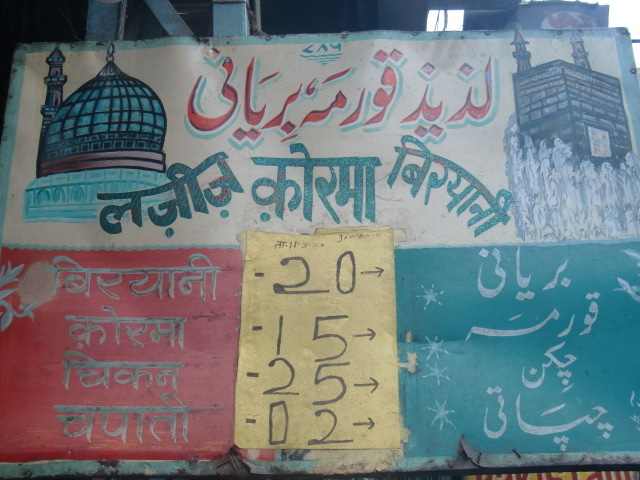 ۷۸۶
لذیذ قورمہ بریانی
लज़ीज़ क़ोरमा बिरयानी
बिरयानी 20 → بریانی
क़ोरमा 15 → قورمہ
चिकन 25 → چکن
चपाती 02 → چپاتی